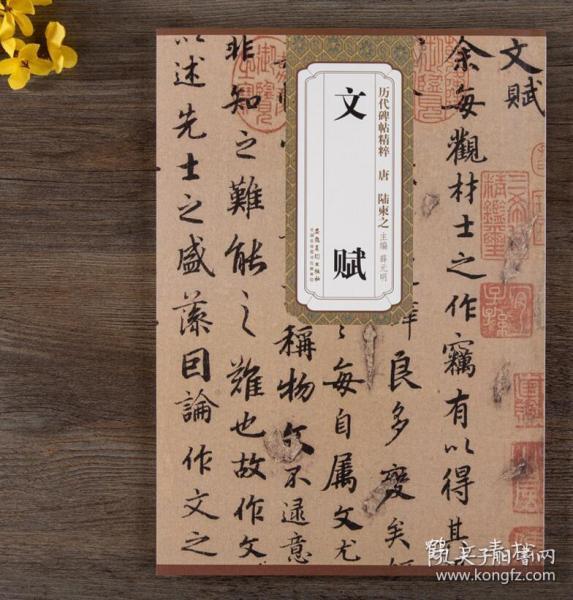 文賦
余每觀材士之作竊有以得其
良多變矣
每自屬文尤
稱物文不逮意
非知之難能之難也故作文
以述先士之盛藻因論作文之
历代碑帖精粹 唐 陆柬之
主编 薛元明
文赋
安徽美术出版社
孔夫子旧书网
www.kongfz.com